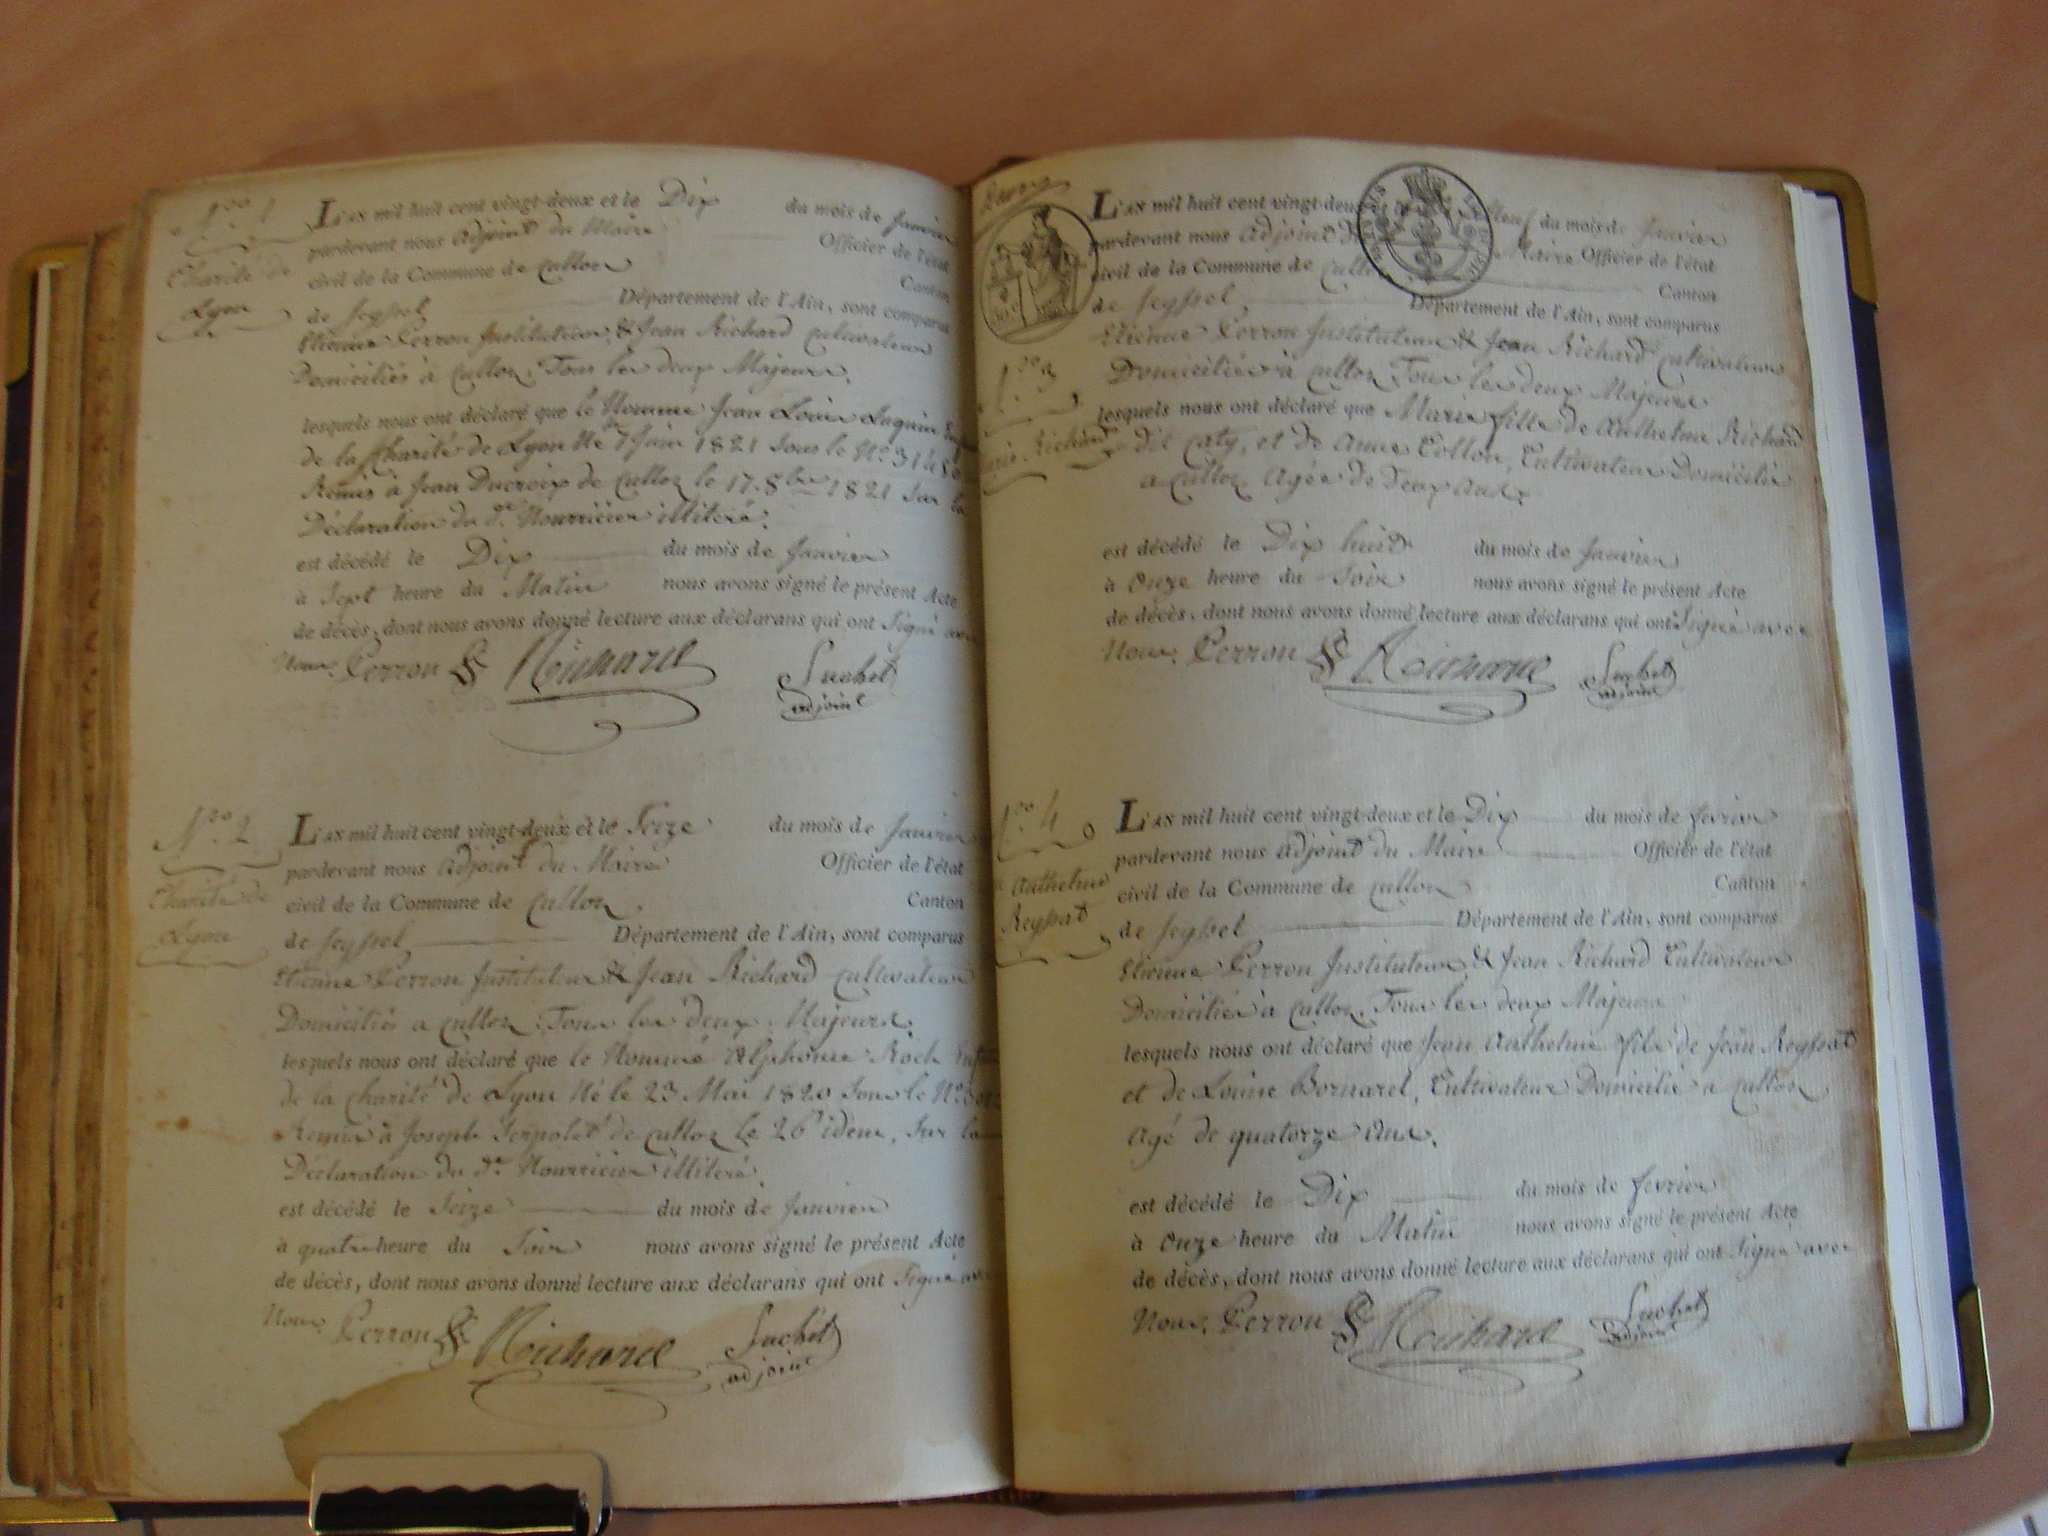 N.ro 1
Charité de
Lyon
L'AN mil huit cent vingt-deux et le Dix du mois de Janvier
pardevant nous adjoint du Maire Officier de l'état
civil de la Commune de Culloz Canton
de Seyssel Département de l'Ain, sont comparus
Etienne Perron Instituteur, & Jean Richard Cultivateur
Domiciliés à Culloz, Tous les deux Majeurs,
lesquels nous ont déclaré que le Nommé Jean Louis
de la Charité de Lyon Né le 7 Juin 1821 Sous le N.o
Remis à Jean Ducroix de Culloz le 17. 8bre 1821 Sur la
Déclaration du d.t Nourricier illitéré.
est décédé le Dix du mois de Janvier
à Sept heure du Matin nous avons signé le présent Acte
de décès, dont nous avons donné lecture aux déclarans qui ont Signé avec
Nous. Perron & Richard Suchet
adjoint
N.ro 2
Charité de
Lyon
L'AN mil huit cent vingt-deux et le Seize du mois de Janvier
pardevant nous adjoint du Maire Officier de l'état
civil de la Commune de Culloz Canton
de Seyssel Département de l'Ain, sont comparus
Etienne Perron Instituteur & Jean Richard Cultivateur
Domiciliés a Culloz, Tous les deux Majeurs,
lesquels nous ont déclaré que le Nommé Alphonse Roch
de la Charité de Lyon Né le 23 Mai 1820 Sous le N.o
Remis à Joseph Serpolet de Culloz le 26 idem, Sur la
Déclaration du d.t Nourricier illitéré.
est décédé le Seize du mois de Janvier
à quatre heure du Soir nous avons signé le présent Acte
de décès, dont nous avons donné lecture aux déclarans qui ont Signé avec
Nous. Perron & Richard Suchet
adjoint
N.ro 3
Marie Richard
L'AN mil huit cent vingt-deux neuf du mois de Janvier
pardevant nous adjoint du Maire Officier de l'état
civil de la Commune de Culloz Canton
de Seyssel Département de l'Ain, sont comparus
Etienne Perron Instituteur & Jean Richard Cultivateur
Domiciliés à Culloz Tous les deux Majeurs
lesquels nous ont déclaré que Marie fille de Anthelme Richard
dit Caty, et de Anne Collon, Cultivateur Domicilié
a Culloz Agée de Deux ans,
est décédé le Dix huit du mois de Janvier
à Onze heure du Soir nous avons signé le présent Acte
de décès, dont nous avons donné lecture aux déclarans qui ont Signé avec
Nous. Perron & Richard Suchet
adjoint
N.ro 4
Anthelme
Reyssat
L'AN mil huit cent vingt-deux et le Dix du mois de fevrier
pardevant nous adjoint du Maire Officier de l'état
civil de la Commune de Culloz Canton
de Seyssel Département de l'Ain, sont comparus
Etienne Perron Instituteur, & Jean Richard Cultivateur
Domiciliés à Culloz, Tous les deux Majeurs
lesquels nous ont déclaré que Jean Anthelme fils de Jean Reyssat
et de Louise Bornarel, Cultivateur Domicilié a Culloz
Agé de quatorze Ans,
est décédé le Dix du mois de fevrier
à Onze heure du Matin nous avons signé le présent Acte
de décès, dont nous avons donné lecture aux déclarans qui ont Signé avec
Nous. Perron & Richard Suchet
adjoint